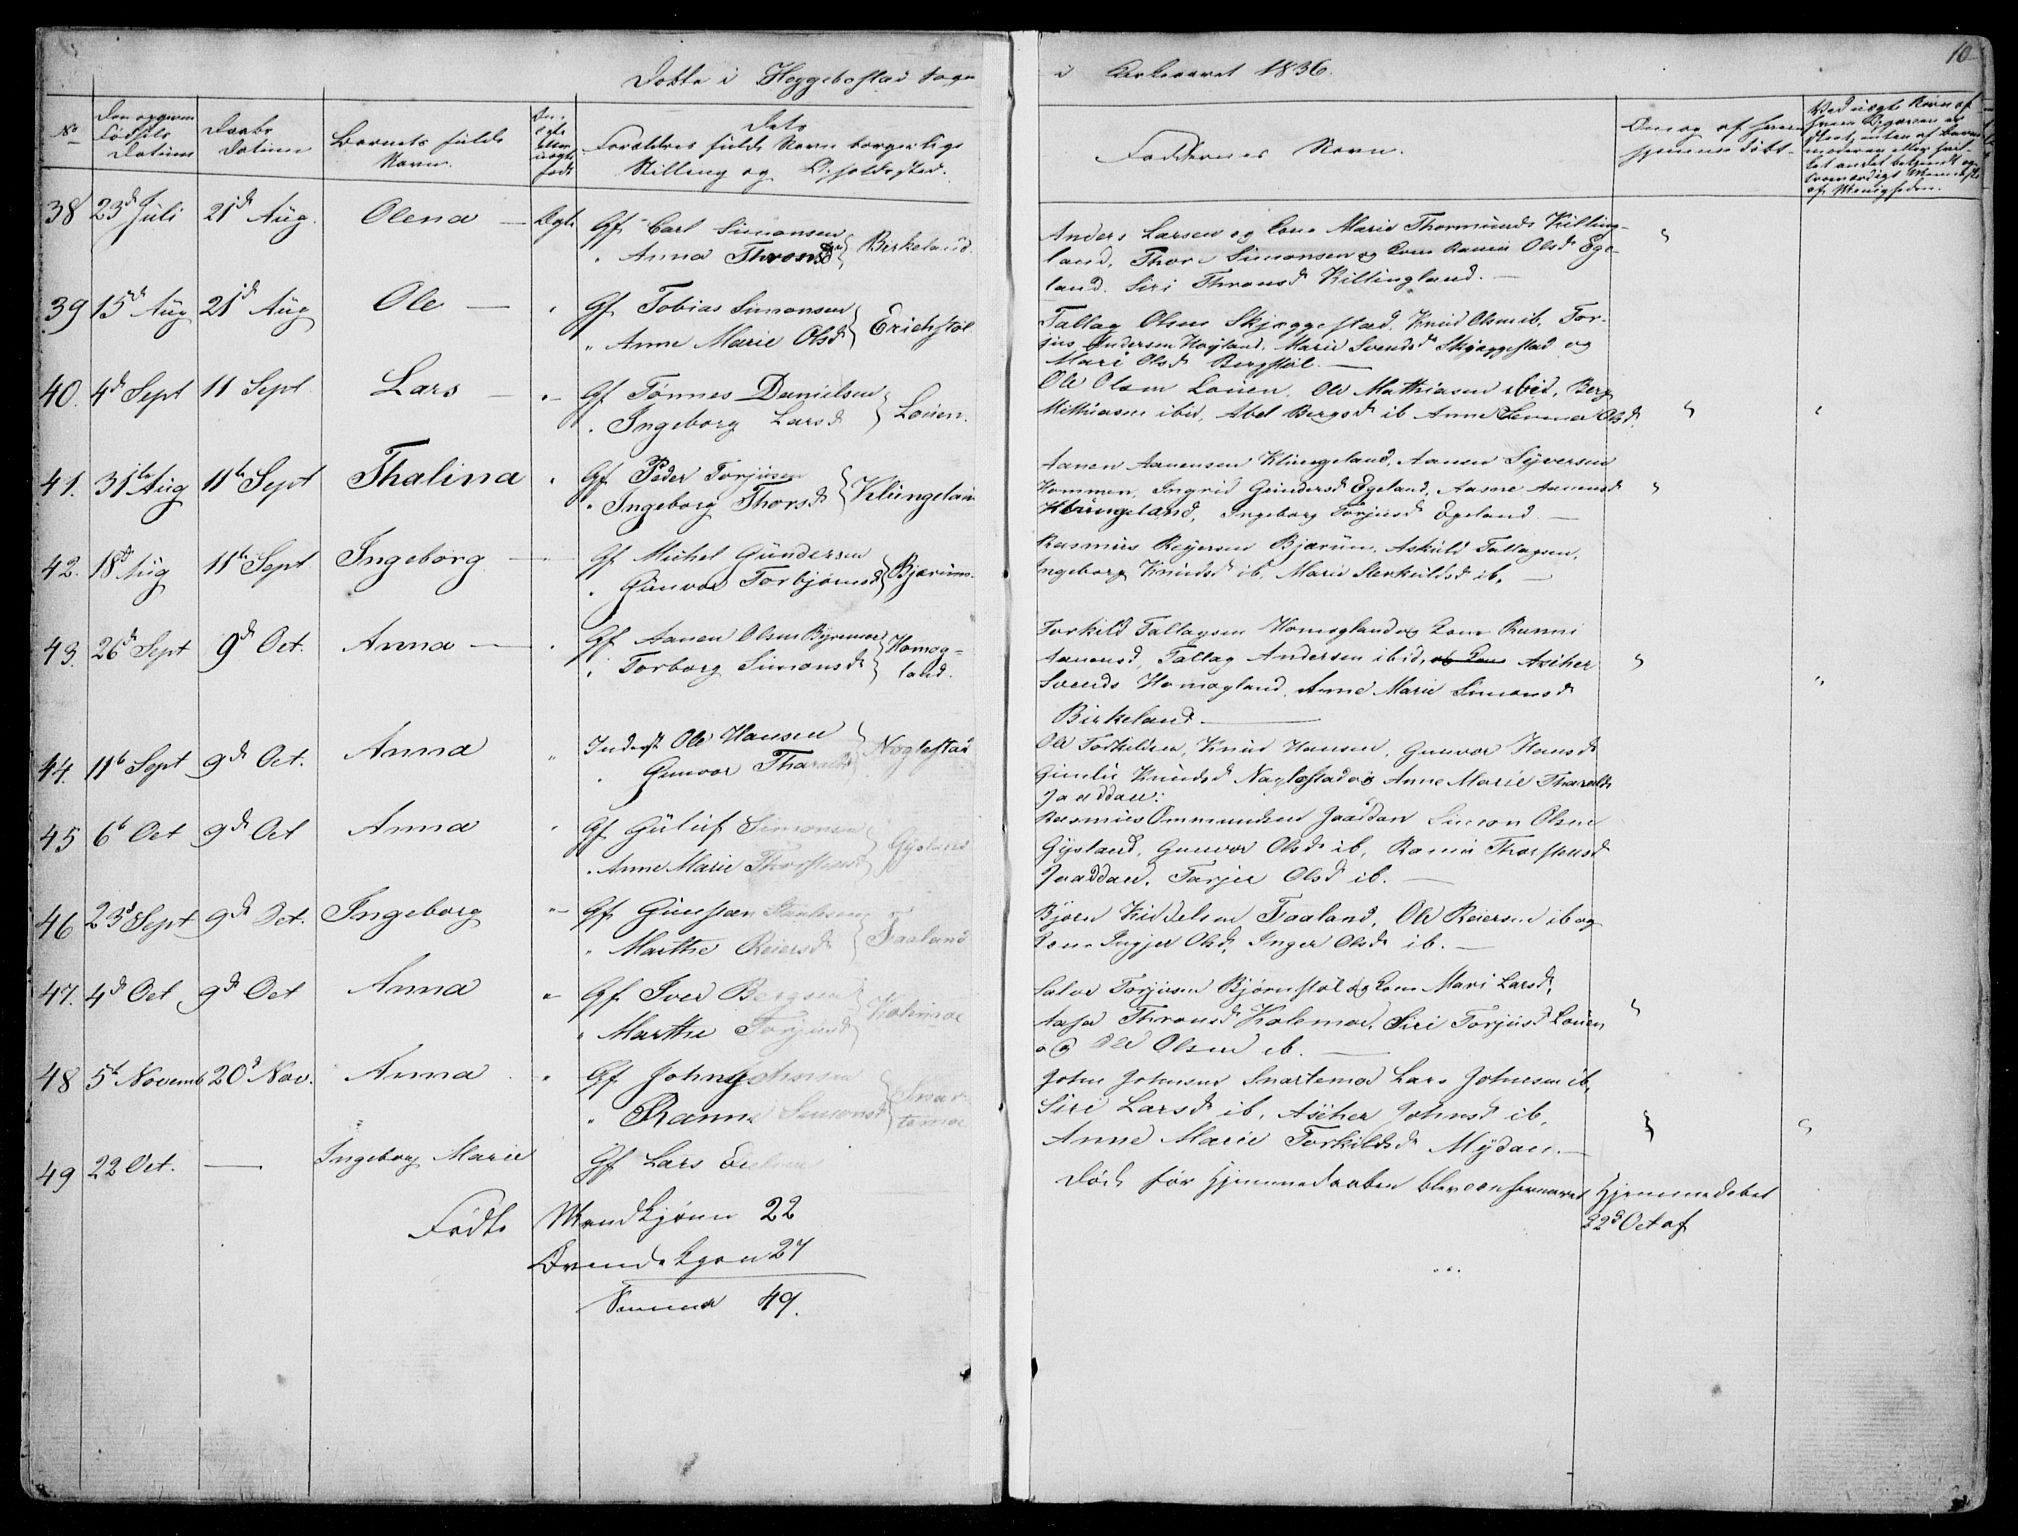 Døbte i Heggebostad Sogn
i Kirkeaaret 1836.
10
No
Den opgivne Fødsels Datum
Daabs Datum
Barnets fulde Navn.
Om ægte eller uægte født
Dets Forældres fulde Navn borgerlige Stilling og Opholdssted.
Faddernes Navn.
Om og af hvem hjemmedøbt
38 23d Juli 21d Aug. Olena — Ægte Gf. Carl Simonsen
" Anna Thronsd } Birkeland.
Anders Larsen og Kone Marie Thormunds Killing-
land, Thor Simonsen og Kone Rannie Olsd Ege-
land. Siri Thronsd Killingland. —
39 15d Aug 21d Aug Ole — " Gf. Tobias Simonsen
" Anne Marie Olsd } Erichstøl
Tallag Olsen Skjæggestad, Knud Olsen ib, Tor-
jus Andersen Høyland, Marie Svendsd Skjæggestad og
Mari Olsd Bergstøl. —
40. 4d Sept 11 Sept. Lars — " Gf. Tønnes Danielsen
" Ingeborg Larsd } Louen.
Ole Olsen Louen, Ole Mathiasen ibid, Berg
Mathiasen ibid, Abel Bergsd ib Anne Olsd.
41. 31te Aug 11te Sept Thalina " Gf. Peder Torjusen
" Ingeborg Thorsd } Klungelan
Aanen Aanensen Klungeland, Aanen Syversen
Hommen, Ingrid Gundersd Egeland, Aasne Aanensd
Klungeland, Ingeborg Torjusd Egeland. —
42. 18d Aug 11te Sept Ingeborg — Gf. Michel Gundersen
" Gunvor Torbjørnsd } Bjærum.
Rasmus Reyersen Bjærum, Askild Tallagsen,
Ingeborg Knudsd ib, Marie Sterkuldsd ib. —
43. 26d Sept 9d Oct. Anna — " Gf. Aanen Olsen Byremoe
" Torborg Simonsd } Homog-
land.
Torkild Tallagsen Homogland og Kone Ranni
Aanensd, Tallag Andersen ibid, og Kone Axiher
Svends Homogland, Anne Marie Simonsd
Birkeland —
44. 11te Sept 9d Oct. Anna " Inderst Ole Hansen
" Gunvor Tharaldsd } Noglestad
Ole Torkildsen, Knud Hansen, Gunvor Hansd
Gunlie Knudsd Noglestad og Anne Marie Tharalds
Jaaddan.
45 6te Oct 9d Oct Anna " Gf Guluf Simonsen
" Anne Marie Thorstensd } Gysland
Rasmus Ommundsen Jaaddan Simon Olsen
Gysland, Gunvor Olsd ib, Rannie Thorstensd
Jaaddan, Tarjer Olsd ib. —
46 23d Sept 9d Oct. Ingeborg " Gf.
" Marthe Reiersd } Faaland
Bjørn Faaland, Ole Reiersen ib og
Kone Ingjer Olsd, Inger Olsd ib. —
47. 4d Oct 9d Oct Anna " Gf. Iver Bergsen
" Marthe Torjusd } Kolemoe
Salve Torjusen Bjørnstøl og Kone Mari Larsd,
Aasa Thronsd Kolemoe, Siri Torjusd Louen
og Ole Olsen ib. —
48 5te Novemb 20d Nov. Anna " Gf John Johnsen
" Ranne Simonsd } Snar-
temoe
John Johnsen Snartemoe Lars Johnsen ib,
Siri Larsd ib, Axiher Johnsd ib,
Anne Marie Torkildsd Mydan. —
49 22 Oct. — Ingeborg Marie Gf Lars
Død før Hjemmedaaben blev Hjemmedøbet
22d Oct af
Fødte Mandkjønn 22
Qvindekjøn 27
Summa 49.